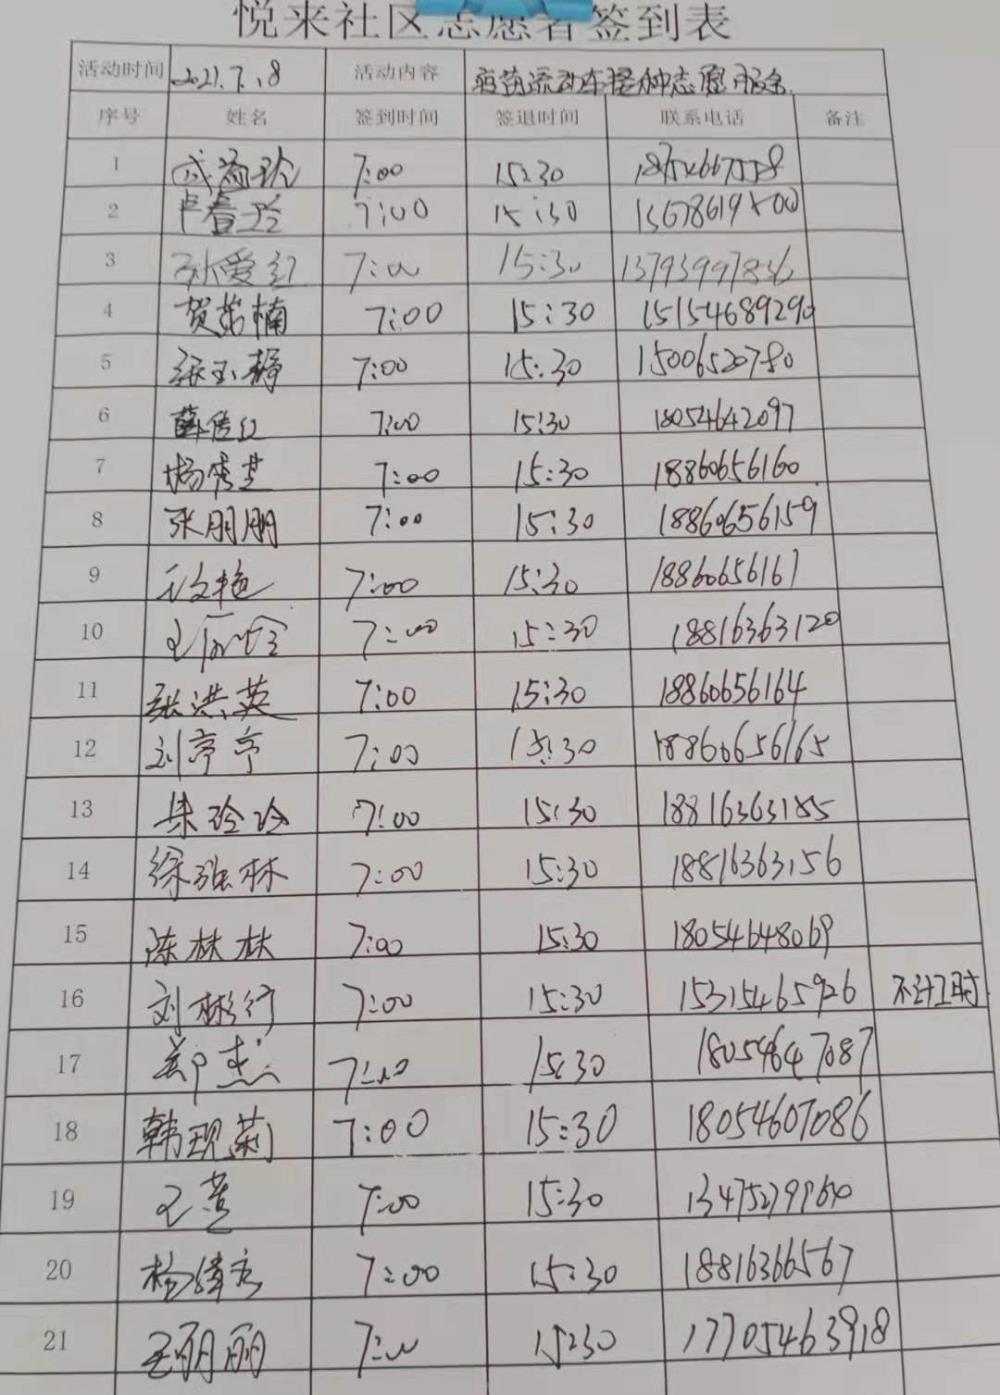 悦来社区志愿者签到表
活动时间 2021.7.8 活动内容 疫苗流动车接种志愿服务
序号 姓名 签到时间 签退时间 联系电话 备注
1 7:00 15:30
2 卓春玲 7:00 15:30
3 孙爱红 7:00 15:30 13793997836
4 贺茹楠 7:00 15:30 15154689290
5 张玉静 7:00 15:30 15006520780
6 薛传红 7:00 15:30 18054642097
7 杨秀芝 7:00 15:30 18860656160
8 张朋朋 7:00 15:30 18860656159
9 7:00 15:30 18860656161
10 7:00 15:30 18816363120
11 张洪英 7:00 15:30 18860656164
12 刘亭亭 7:00 15:30 18860656165
13 朱玲玲 7:00 15:30 18816363185
14 徐强林 7:00 15:30 18816363156
15 陈林林 7:00 15:30 18054648069
16 刘彬行 7:00 15:30 15315465926 不计工时
17 郑杰 7:00 15:30 18054647087
18 韩现菊 7:00 15:30 18054607086
19 王萱 7:00 15:30
20 7:00 15:30 18816366567
21 王丽丽 7:00 15:30 17705463918